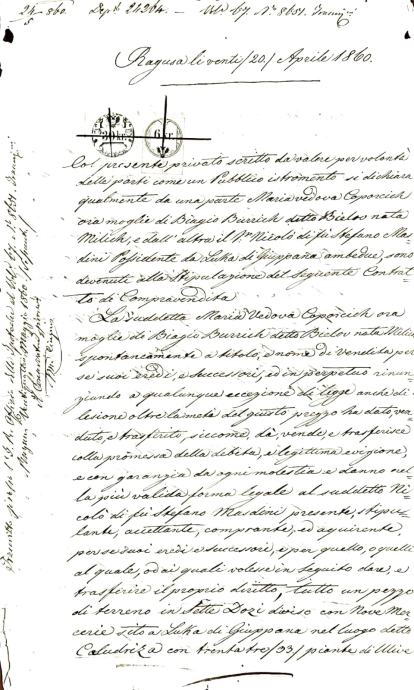 24/5 860. Dep.to 24264. - Vol. 67. N.o 8651.
Ragusa li venti /20/ Aprile 1860.
30 kr. 6 kr.
Col presente privato scritto da valere per volontà
delle parti come un Pubblico istromento si dichiara
qualmente da una parte Maria vedova Caporcich
ora moglie di Biagio Burrich detto Bielov nata
Milich, e dall'altra il Sr. Nicolò di fu Stefano Mas
dini Possidente da Luka di Giuppana ambedue, sono
devenute alla Stipulazione del Seguente Contrat
to di Compravendita.
La suddetta Maria Vedova Caporcich ora
moglie di Biagio Burrich detto Bielov nata Milich
spontaneamente a titolo, e nome di vendita per
se suoi eredi, e successori, ed in perpetuo rinun
ziando a qualunque eccezione di Legge anche di
lesione oltre la metà del giusto prezzo ha dato, ven
duto, e trasferito, siccome, dà, vende, e trasferisce
colla promessa della debita, e legittima evizione,
e con garanzia da ogni molestia e danno nel
la più valida forma legale al suddetto Ni
colò di fu Stefano Masdini presente, stipu
lante, accettante, comprante, ed aquirente,
per se suoi eredi e successori, e per quello, o quelli
al quale, od ai quali volese in seguito dare, e
trasferire il proprio diritto, tutto un pezzo
di terreno in Sette Dozi diviso con Nove Mer
cerie sito a Luka di Giuppana nel luogo detto
Caludriza con trenta tre /33/ piante di Ulive